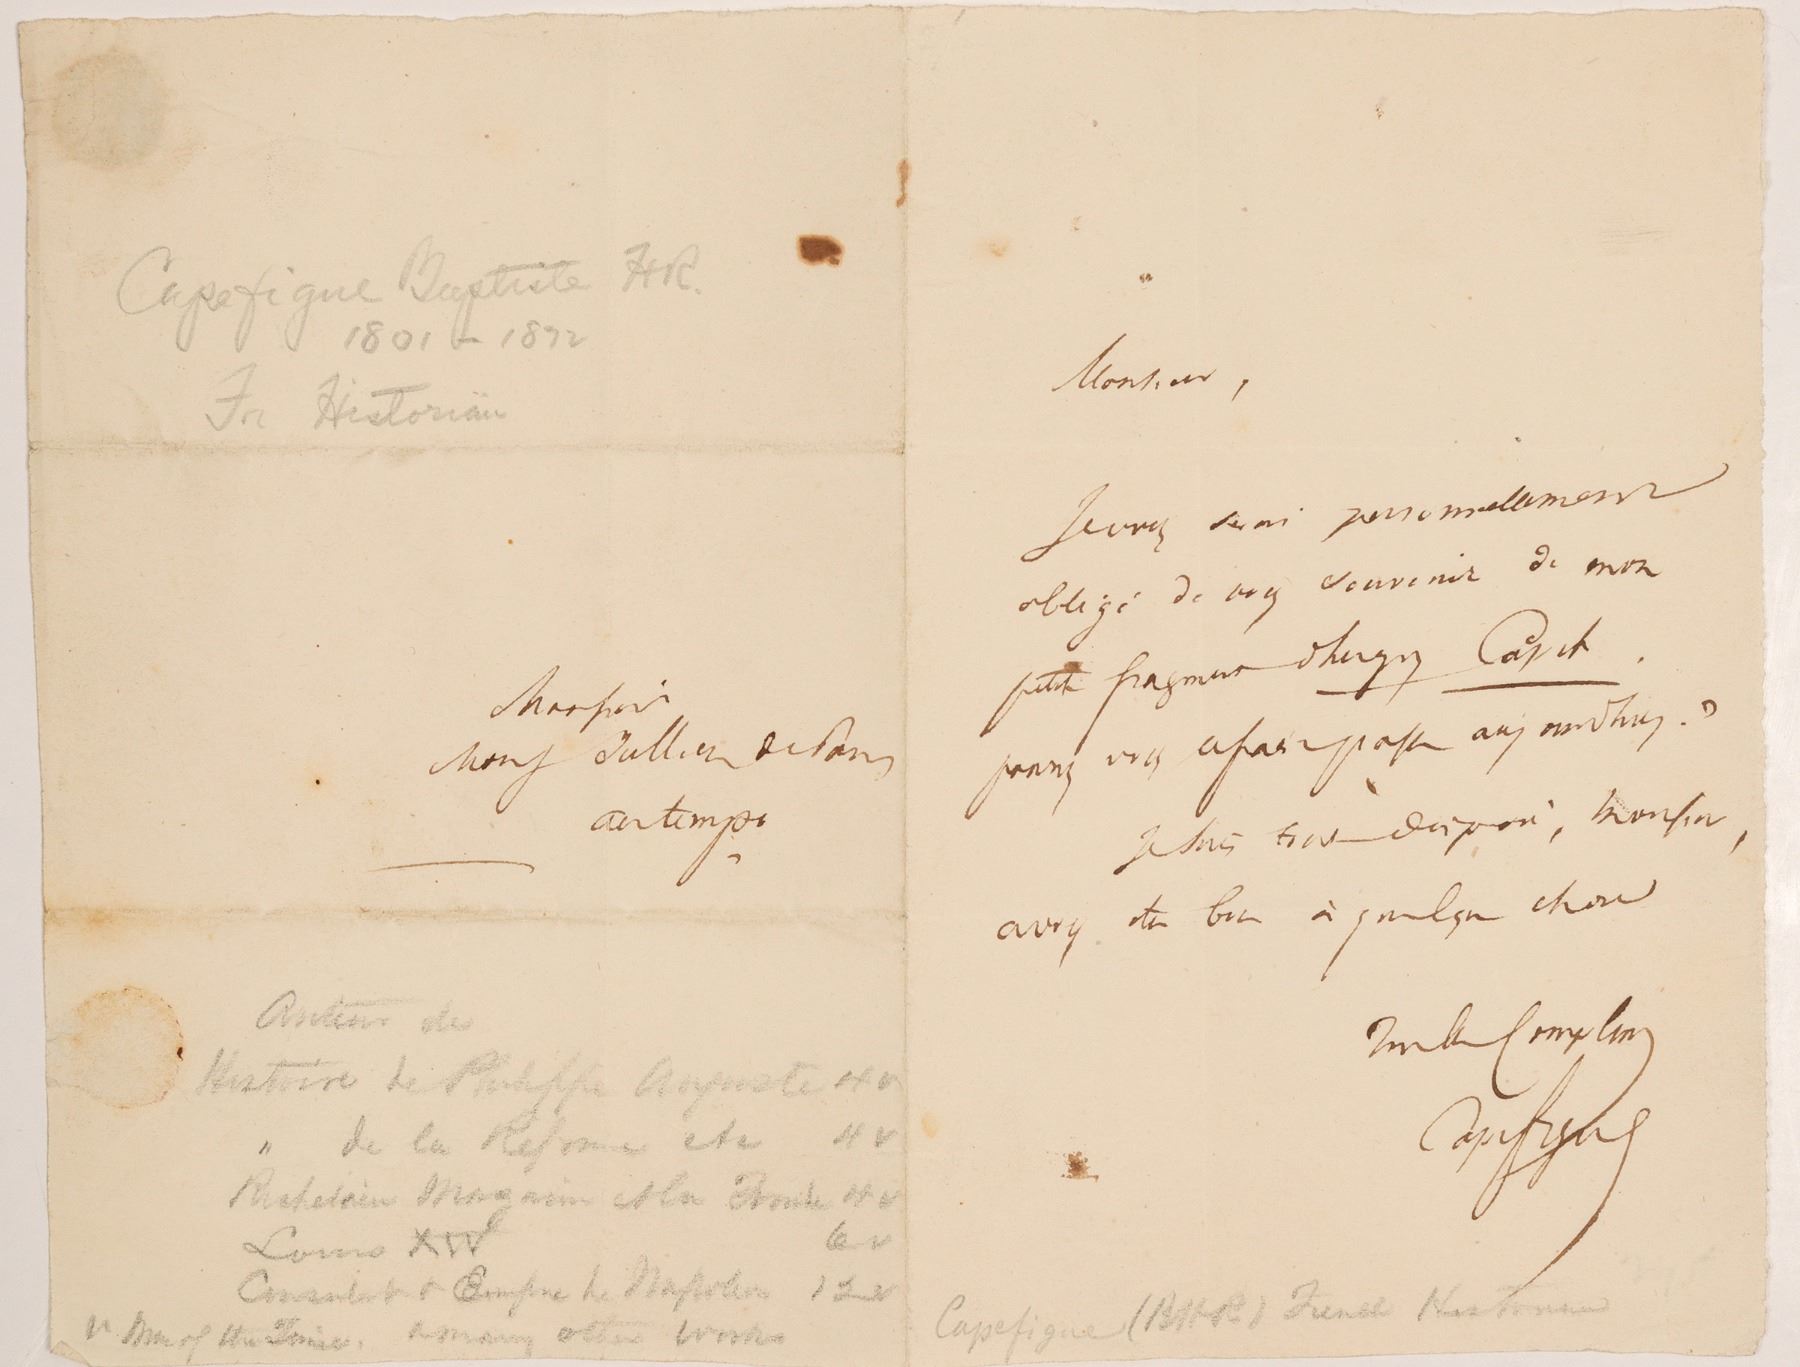 Capefigue Baptiste H R.
1801 - 1872
Fr Historian
Monsieur
Mons Jullien de Paris
au temps
Auteur de
Histoire de Philippe Auguste 4 v
" de la Reforme etc 4 v
Richelieu Mazarin et la Fronde 4 v
Louis XIV 6 v
Consulat & Empire de Napoleon 12 v
V. Men of the Time. & many other works
Monsieur,
Je vous serai personnellement
obligé de vous souvenir de mon
petit fragment d'hugues Capet.
vous aujourdhui ?
Je suis tout , Monsieur,
à quelque chose
Mille Complim
Capefigue
Capefigue (B H R) French Historian